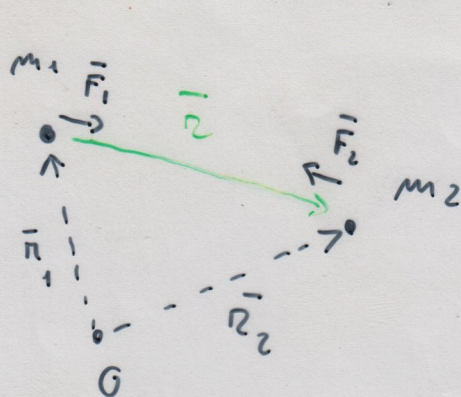 m₁
F̄₁
r̄
F̄₂
m₂
r̄₁
r̄₂
O